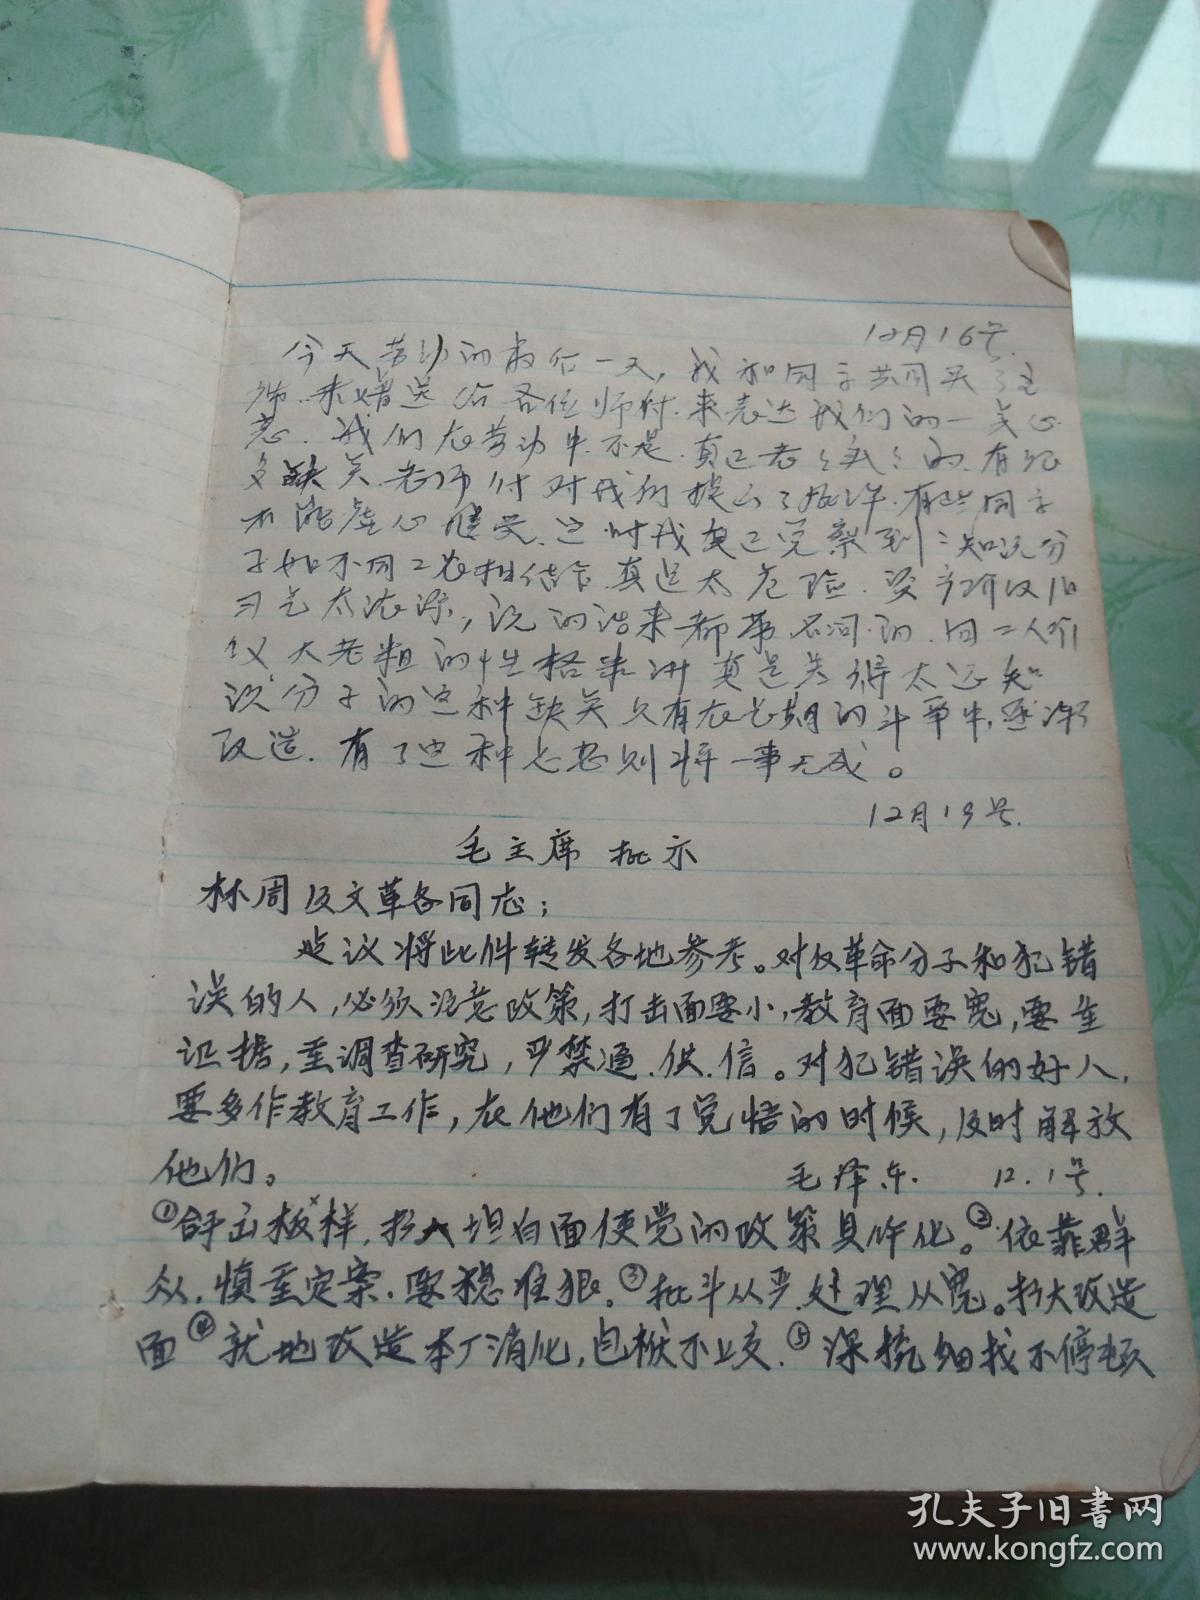 12月16号.
今天劳动的最后一天,我和同学共同买了主
席.来赠送给各位师付.来表达我们的一美心
意.我们在劳动中.不是.真正老老实实的.有很
多缺关.老师付对我们提出了批评.有些同学
不能虚心接受.这时我真正觉察到:知识分
子如不同工农相结合真是太危险.资产阶级旧
习气太浓深,说的话来都带 的.同工人阶
仪大老粗的性格来讲真是差得太 知
识分子的这种缺关只有在长期的斗争中,逐渐
改造.有了这种 则将一事无成。
12月19号.
毛主席 批示
林周及文革各同志;
建议将此件转发各地参考。对反革命分子和犯错
误的人,必须注意政策,打击面要小,教育面要宽,要重
证据,重调查研究,严禁逼.供.信。对犯错误的好人,
要多作教育工作,在他们有了觉悟的时候,及时解放
他们。 毛泽东. 12.1号.
① 立板样,扩大坦白面使党的政策具体化。②依靠群
众.慎重定案.要稳准狠。③批斗从严.处理从宽。扩大改造
面④就地改造本厂消化,包袱不上交.⑤深挖细找不停顿
孔夫子旧书网
www.kongfz.com